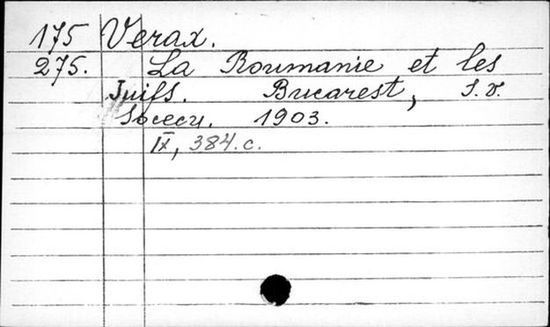 175 Verax.
275. La Roumanie et les
Juifs. Bucarest, I.V.
Socecu. 1903.
IX, 384.c.